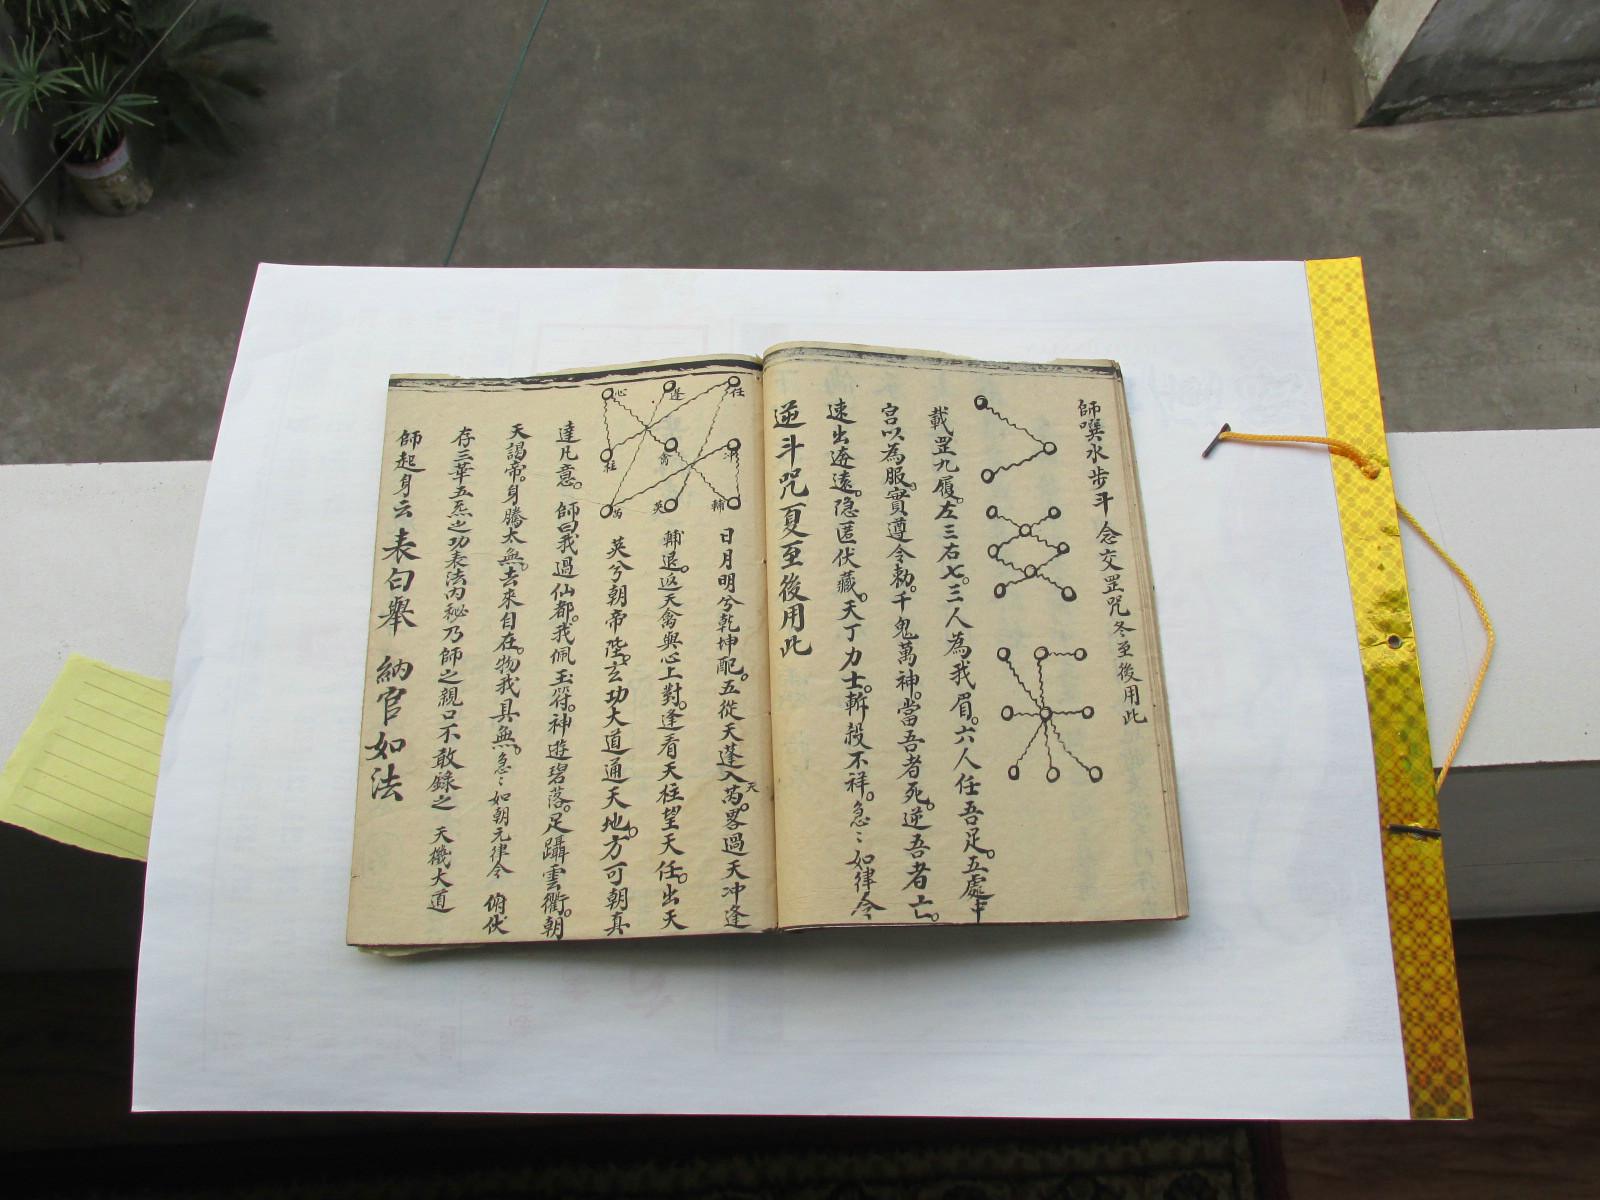 師噀水步斗 念交罡咒冬至後用此
載罡九履。左三右七。三人為我眉。六人任吾足。五處中
宮以為服。實遵令勅。千鬼萬神。當吾者死。逆吾者亡。
速出遠。隐匿伏藏。天丁力士。斬殺不祥。急〻如律令
逆斗咒夏至後用此
心 逢 任
柱 禽 冲
芮 英 輔
日月明兮乾坤配。五從天蓬入天芮。畧過天冲逢
輔退。返天禽與心上對。逢看天柱望天任。出天
英兮朝帝陛。玄功大道通天地。方可朝真
達凡意。 師曰我過仙都。我佩玉符。神遊碧落。足躡雲衢。朝
天謁帝。身騰太無。去來自在。物我具無。急〻如朝元律令 俯伏
存三華五炁之功表法内秘乃師之親口不敢錄之 天機大道
師起身云 表白舉 納官如法